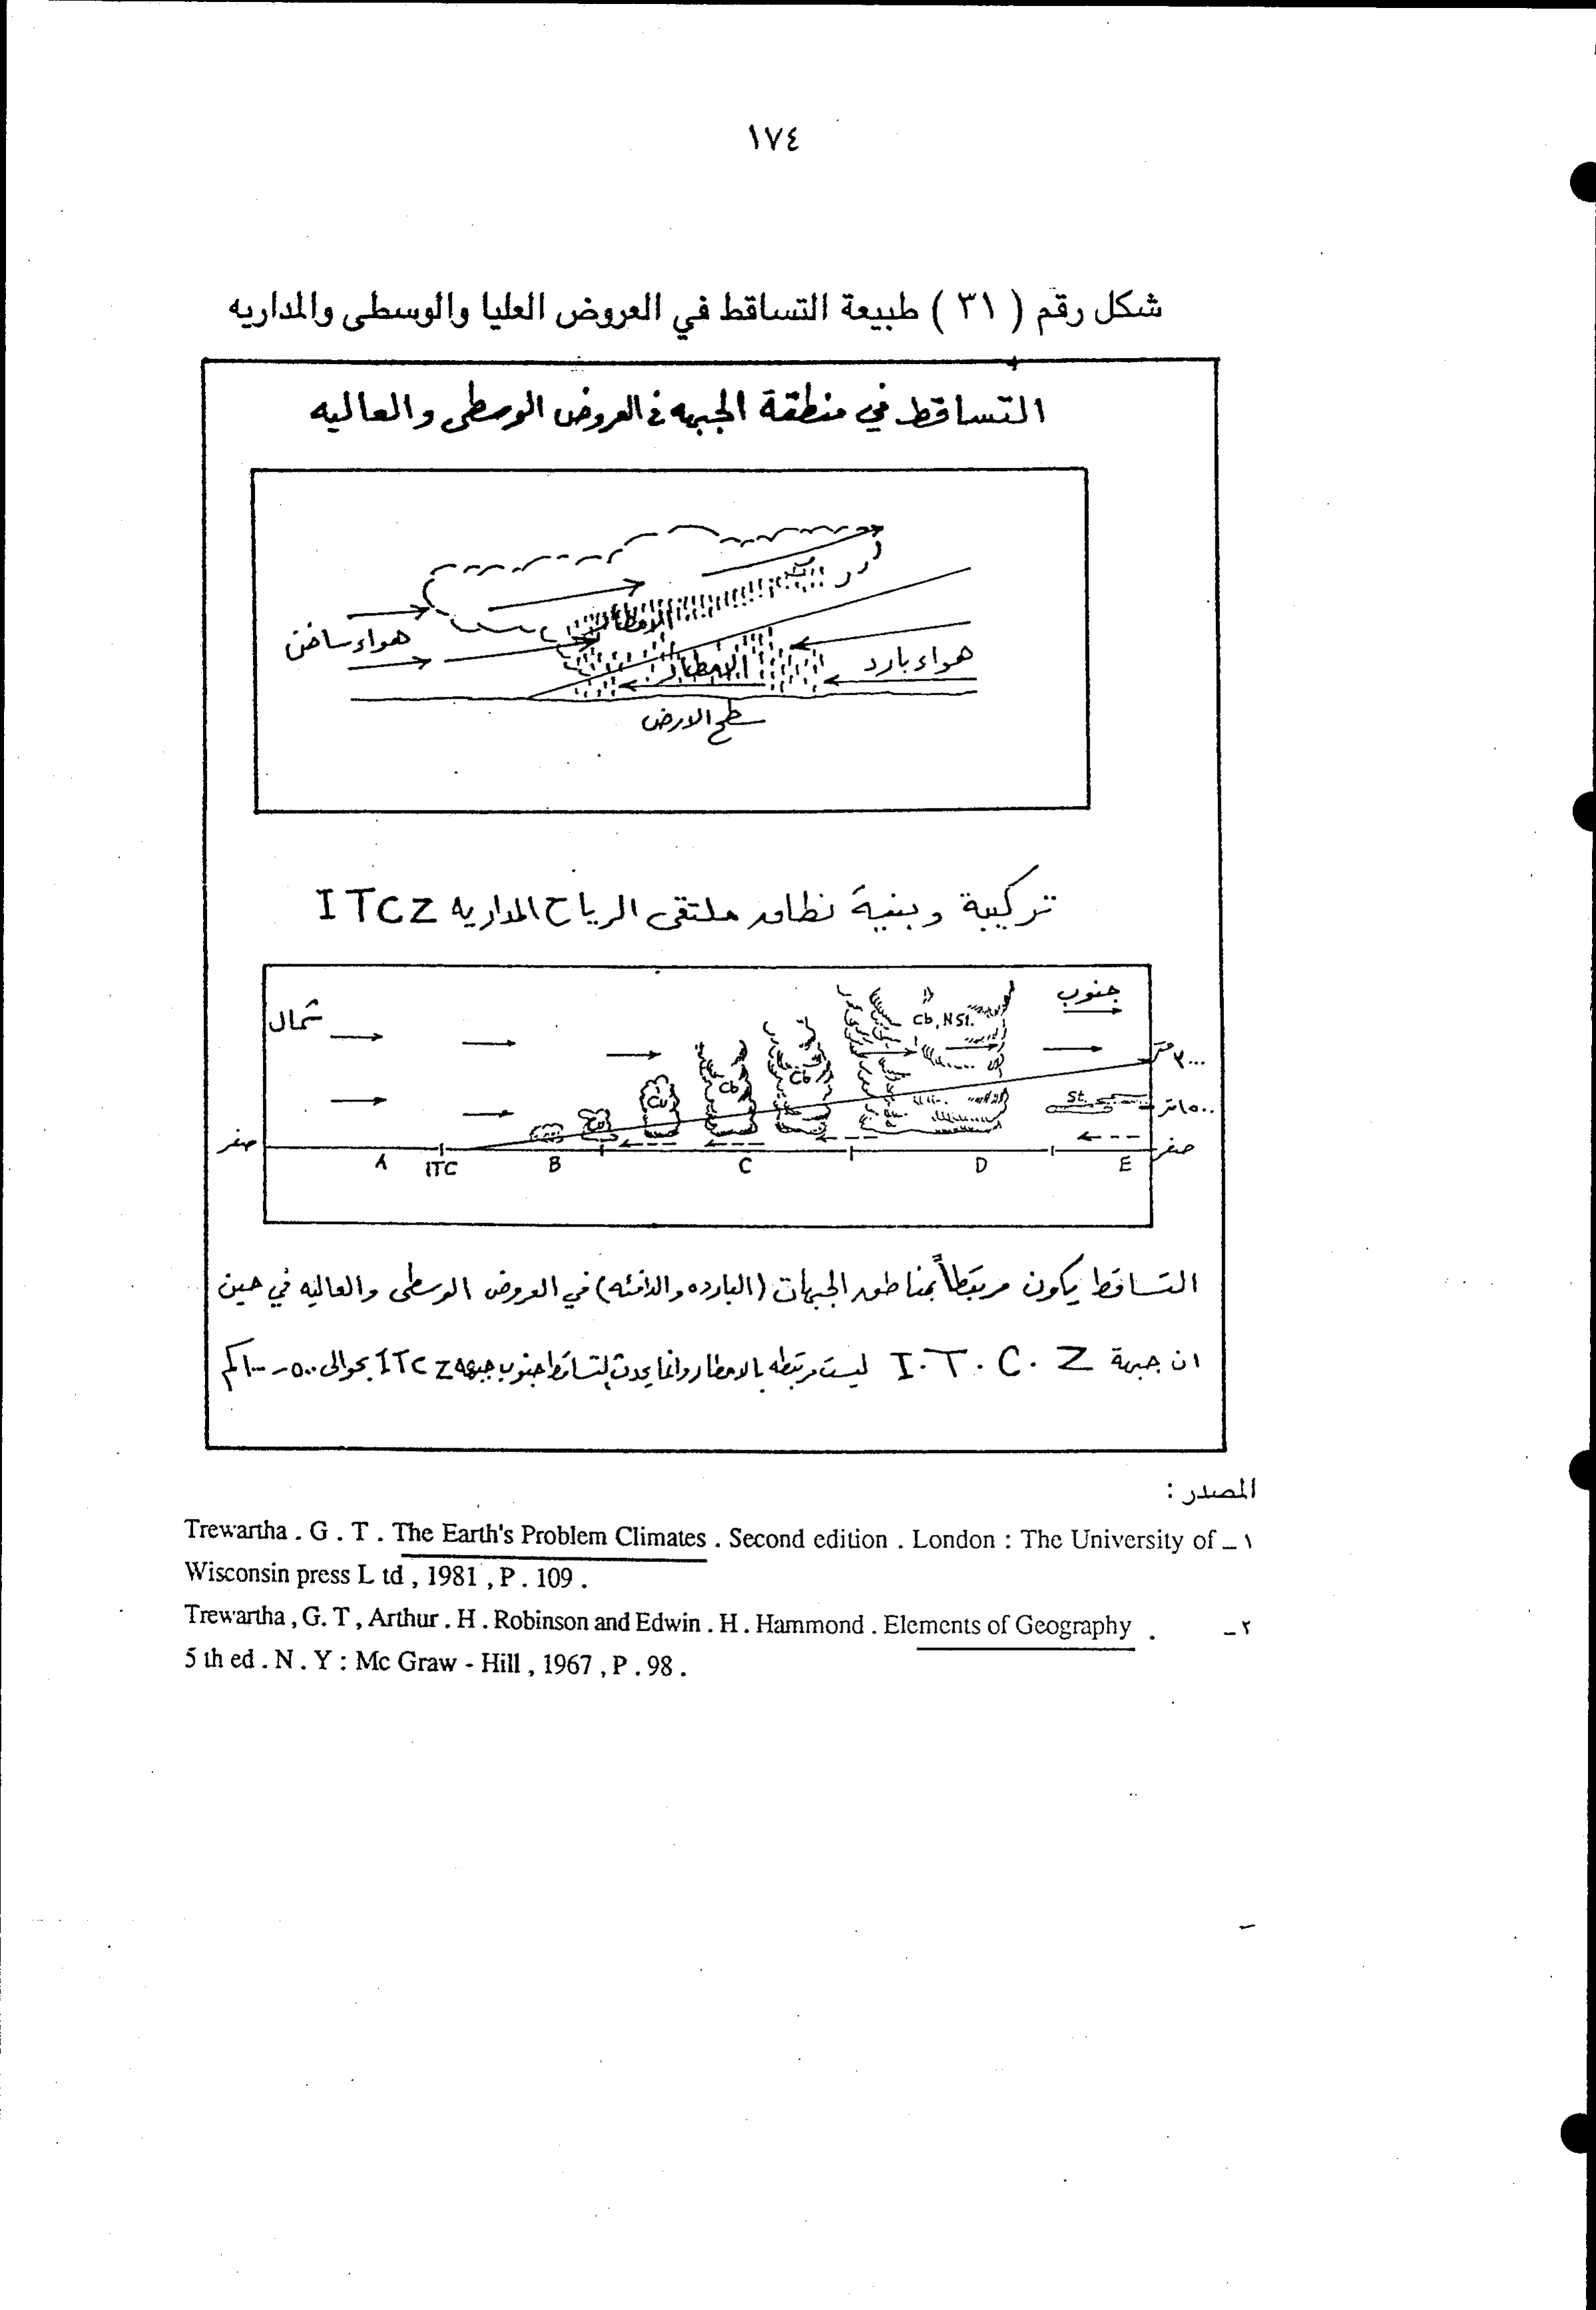 ١٧٤
شكل رقم ( ٣١ ) طبيعة التساقط في العروض العليا والوسطى والمداريه
التساقط في منطقة الجبهه في العروض الوسطى والعاليه
هواء ساخن
الامطار
الامطار
هواء بارد
سطح الارض
تركيبة وبنية نظام ملتقى الرياح المداريه ITCZ
شمال
جنوب
Cb, NSt.
٣٠٠٠ متر
Cb
Cb
Cu
Cu
St.
١٥٠٠ متر
صفر
صفر
A ITC B C D E
التساقط يكون مرتبطاً بمناطق الجبهات (البارده والدافئه) في العروض الوسطى والعاليه في حين
ان جبهة I.T.C.Z ليست مرتبطه بالامطار وانما يحدث التساقط جنوب جبهة ITCZ بحوالى ٥٠٠ - ١٠٠٠ كم
المصدر :
١ – Trewartha . G . T . The Earth's Problem Climates . Second edition . London : The University of
Wisconsin press L td , 1981 , P . 109 .
٢ – Trewartha , G. T , Arthur . H . Robinson and Edwin . H . Hammond . Elements of Geography .
5 th ed . N . Y : Mc Graw - Hill , 1967 , P . 98 .